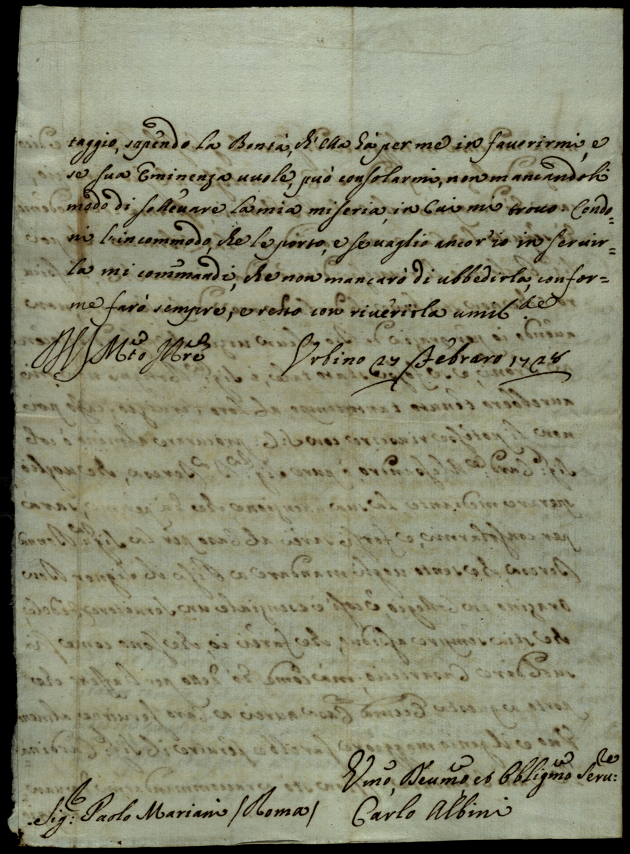 taggio, sapendo la Bontà, ch'ella hà per me in favorirmi, e
se sua Eminenza vuole, può consolarmi, non mancandoli
modo di sollevare la mia miseria, in cui mi trovo Condo-
ni l'incommodo, che le porto, e se vaglio ancor io in servir-
la mi commandi, che non mancarò di ubbedirla, confor-
me farò sempre, e resto con riverirla umil.te
Urbino 27 Febraro 1728
Umo, Devmo et Obligmo Serv:re
Sig: Paolo Mariani (Roma) Carlo Albini